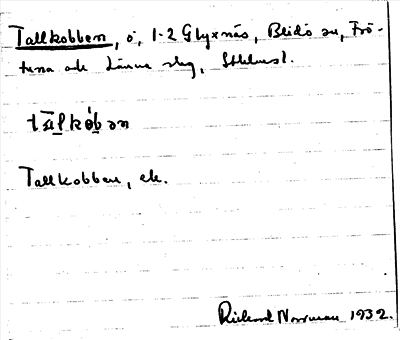 Tallkobben, ö, 1-2 Glyxnäs, Blidö sn, Frö-
tuna och Länna slg, Sthlmsl.
Tallkobben, ek.
Richard Norrman 1932.